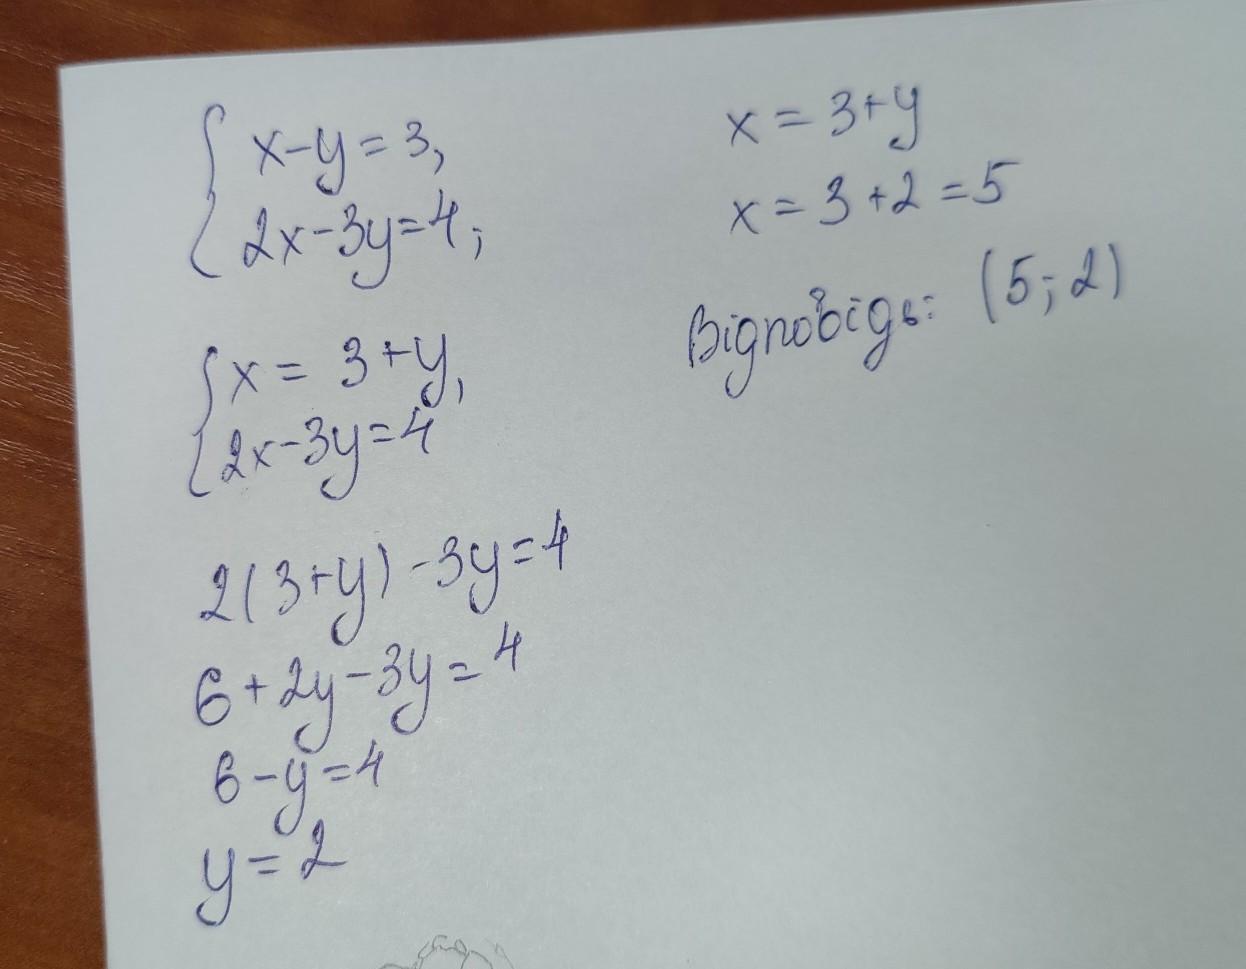 x-y=3,
2x-3y=4;
x = 3+y,
2x-3y=4
2(3+y)-3y=4
6+2y-3y=4
6-y=4
y=2
x=3+y
x=3+2=5
Відповідь: (5;2)